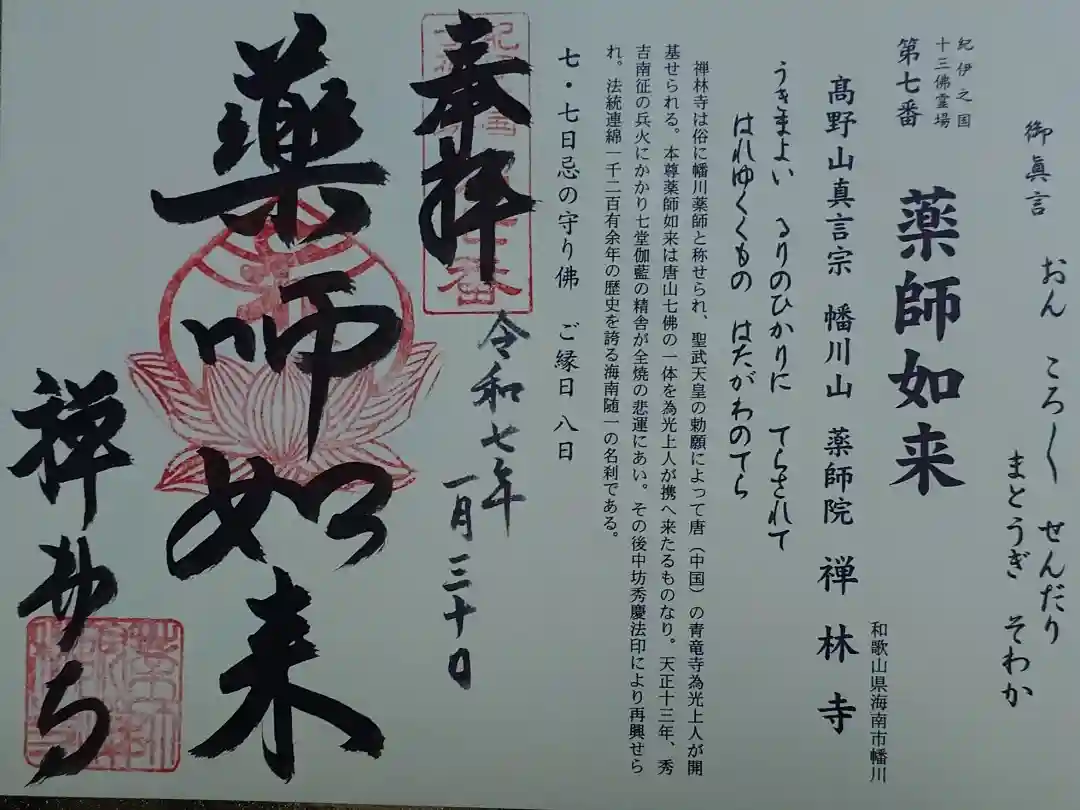 御眞言
おん ころ〳〵 せんだり
まとうぎ そわか
紀伊之国
十三佛霊場
第七番
薬師如来
和歌山県海南市幡川
髙野山真言宗 幡川山 薬師院 禅林寺
うきまよい るりのひかりに てらされて
はれゆくもの はたがわのてら
禅林寺は俗に幡川薬師と称せられ、聖武天皇の勅願によって唐（中国）の青竜寺為光上人が開
基せられる。本尊薬師如来は唐山七佛の一体を為光上人が携へ来たるものなり。天正十三年、秀
吉南征の兵火にかかり七堂伽藍の精舎が全焼の悲運にあい。その後中坊秀慶法印により再興せら
れ。法統連綿一千二百有余年の歴史を誇る海南随一の名刹である。
七・七日忌の守り佛 ご縁日 八日
奉拝
令和七年
一月三十日
薬師如来
禅林寺